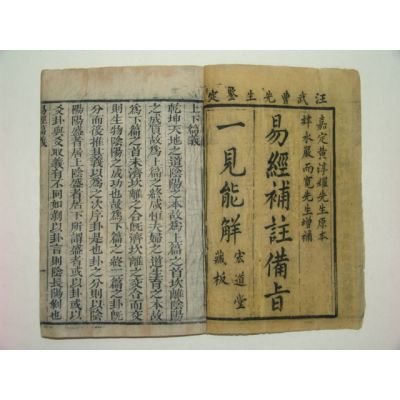 汪武曹先生鑒定
嘉定黄淳耀先生原本
樟水嚴而寬先生增補
易經補註備旨
一見能解
宏道堂
藏板
上下篇義
乾坤天地之道陰陽之本故爲上篇之首坎離陰陽
之成質故爲上篇之終咸恒夫婦之道生育之本故
爲下篇之首未濟坎離之合旣濟坎離之交合而交
則生物陰陽之成功也故爲下篇之終二篇之卦旣
分而後推其義以爲之次序卦是也卦之分則以陰
陽陽盛者居上陰盛者居下所謂盛者或以卦或以
爻卦與爻取義有不同如剥以卦言則陰長陽剝也
易經篇義